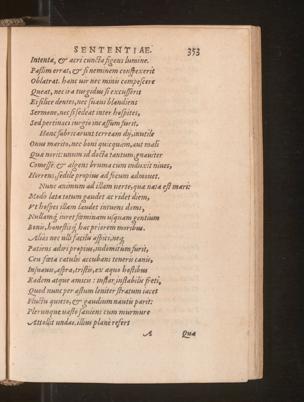 SENTENTIAE. 353
Intenta, & acri cuncta figens lumine.
Passim errat, & si neminem conspexerit
Oblatrat. hanc uir nec minis compescere
Queat, nec ira turgidus si excusserit
Ei silice dentes, nec suaui blandiens
Sermone, nec si sedeat inter hospites,
Sed pertinaci iurgio incassum furit.
Hanc fabricarunt terream dij, inutile
Onus marito, nec boni quicquam, aut mali
Quæ norit: unum id docta tantum, gnauiter
Comesse. & algens bruma cum induxit niues,
Horrens, sedile propius ad ficum admouet.
Nunc animum ad illam uerte, quæ nata est mari:
Modò læta totum gaudet ac ridet diem,
Vt hospes illam laudet intuens domi,
Nullamq́ iuret fœminam usquam gentium
Bonis, honestisq́ hac priorem moribus.
Aliàs nec ulli facilis aspici, neq́
Patiens adiri propius, indomitùm furit,
Ceu fœta catulis accubans teneris canis,
Insuauis, aspra, tristis, ex aquo hostibus
Eadem atque amicis: instar instabilis freti,
Quod nunc per æstum leniter stratum iacet
Fluctu quieto, & gaudium nautis parit:
Plerunque uasto sæuiens cum murmure
Attollit undas, illius planè refert
A Qua